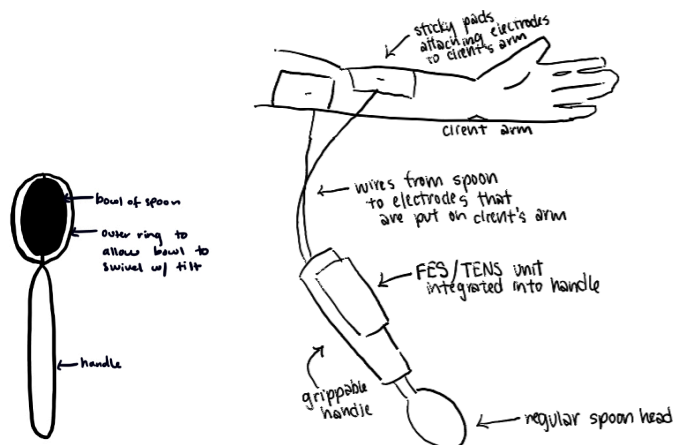 bowl of spoon
outer ring to
allow bowl to
swivel w/ tilt
handle
sticky pads
attaching electrodes
to client's arm
client arm
wires from spoon
to electrodes that
are put on client's arm
FES/TENS unit
integrated into handle
grippable
handle
regular spoon head